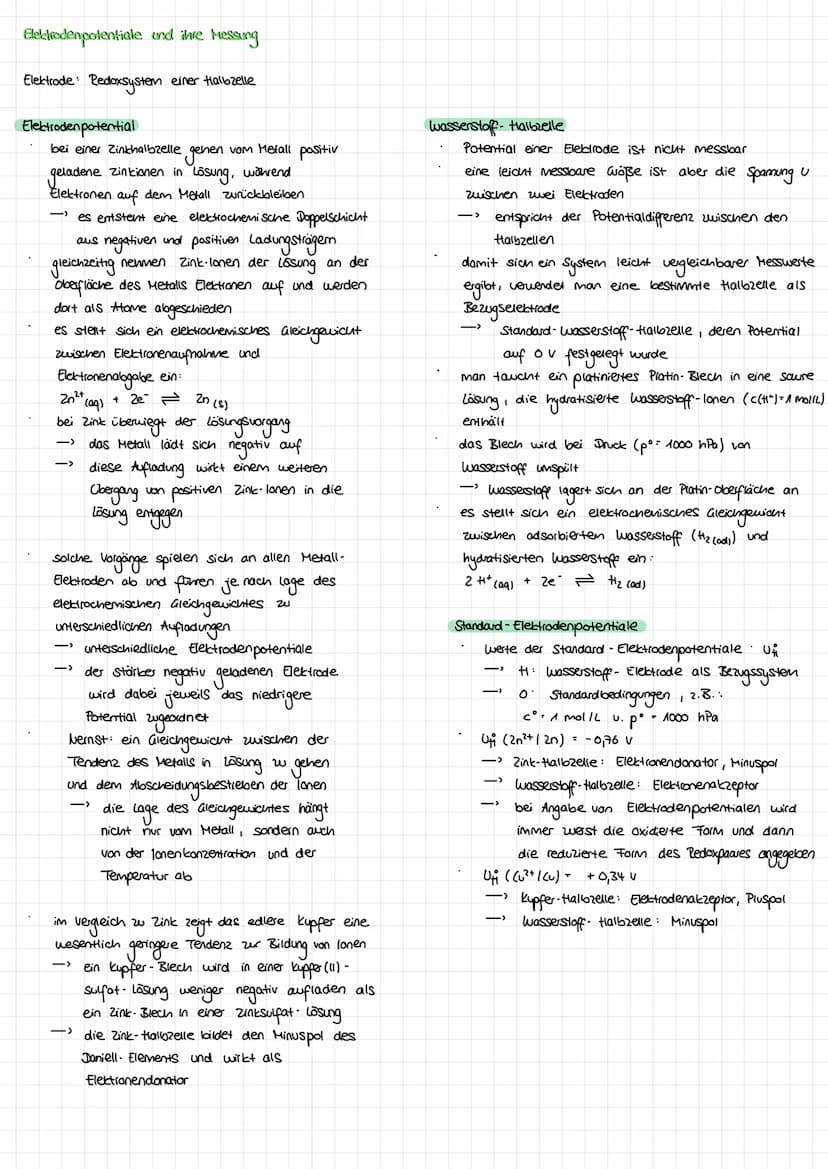 Elektrodenpotentiale und ihre Messung
Elektrode: Redoxsystem einer Halbzelle
Elektrodenpotential
· bei einer Zinkhalbzelle gehen vom Metall positiv
geladene Zinkionen in Lösung, während
Elektronen auf dem Metall zurückbleiben
—> es entsteht eine elektrochemische Doppelschicht
aus negativen und positiven Ladungsträgern
· gleichzeitig nehmen Zink-Ionen der Lösung an der
Oberfläche des Metalls Elektronen auf und werden
dort als Atome abgeschieden
· es stellt sich ein elektrochemisches Gleichgewicht
zwischen Elektronenaufnahme und
Elektronenabgabe ein:
Zn²⁺(aq) + 2e⁻ ⇌ Zn(s)
· bei Zink überwiegt der Lösungsvorgang
—> das Metall lädt sich negativ auf
—> diese Aufladung wirkt einem weiteren
Übergang von positiven Zink-Ionen in die
Lösung entgegen
· solche Vorgänge spielen sich an allen Metall-
Elektroden ab und führen je nach Lage des
elektrochemischen Gleichgewichtes zu
unterschiedlichen Aufladungen
—> unterschiedliche Elektrodenpotentiale
—> der stärker negativ geladenen Elektrode
wird dabei jeweils das niedrigere
Potential zugeordnet
· Nernst: ein Gleichgewicht zwischen der
Tendenz des Metalls in Lösung zu gehen
und dem Abscheidungsbestreben der Ionen
—> die Lage des Gleichgewichtes hängt
nicht nur vom Metall, sondern auch
von der Ionenkonzentration und der
Temperatur ab
· im Vergleich zu Zink zeigt das edlere Kupfer eine
wesentlich geringere Tendenz zur Bildung von Ionen
—> ein Kupfer-Blech wird in einer Kupfer(II)-
sulfat-Lösung weniger negativ aufladen als
ein Zink-Blech in einer Zinksulfat-Lösung
—> die Zink-Halbzelle bildet den Minuspol des
Daniell-Elements und wirkt als
Elektronendonator
Wasserstoff-Halbzelle
· Potential einer Elektrode ist nicht messbar
· eine leicht messbare Größe ist aber die Spannung U
zwischen zwei Elektroden
—> entspricht der Potentialdifferenz zwischen den
Halbzellen
· damit sich ein System leicht vergleichbarer Messwerte
ergibt, verwendet man eine bestimmte Halbzelle als
Bezugselektrode
—> Standard-Wasserstoff-Halbzelle, deren Potential
auf 0 V festgelegt wurde
· man taucht ein platiniertes Platin-Blech in eine saure
Lösung, die hydratisierte Wasserstoff-Ionen (c(H⁺)=1 mol/L)
enthält
· das Blech wird bei Druck (p°= 1000 hPa) von
Wasserstoff umspült
—> Wasserstoff lagert sich an der Platin-Oberfläche an
· es stellt sich ein elektrochemisches Gleichgewicht
zwischen adsorbierten Wasserstoff (H₂(ad)) und
hydratisierten Wasserstoff ein:
2 H⁺(aq) + 2e⁻ ⇌ H₂(ad)
Standard-Elektrodenpotentiale
· Werte der Standard-Elektrodenpotentiale: U°H
—> H: Wasserstoff-Elektrode als Bezugssystem
—> 0: Standardbedingungen, z.B.:
c°= 1 mol/L u. p° = 1000 hPa
· U°H (Zn²⁺/Zn) = -0,76 V
—> Zink-Halbzelle: Elektronendonator, Minuspol
—> Wasserstoff-Halbzelle: Elektronenakzeptor
—> bei Angabe von Elektrodenpotentialen wird
immer zuerst die oxidierte Form und dann
die reduzierte Form des Redoxpaares angegeben
· U°H (Cu²⁺/Cu) = +0,34 V
—> Kupfer-Halbzelle: Elektrodenakzeptor, Pluspol
—> Wasserstoff-Halbzelle: Minuspol